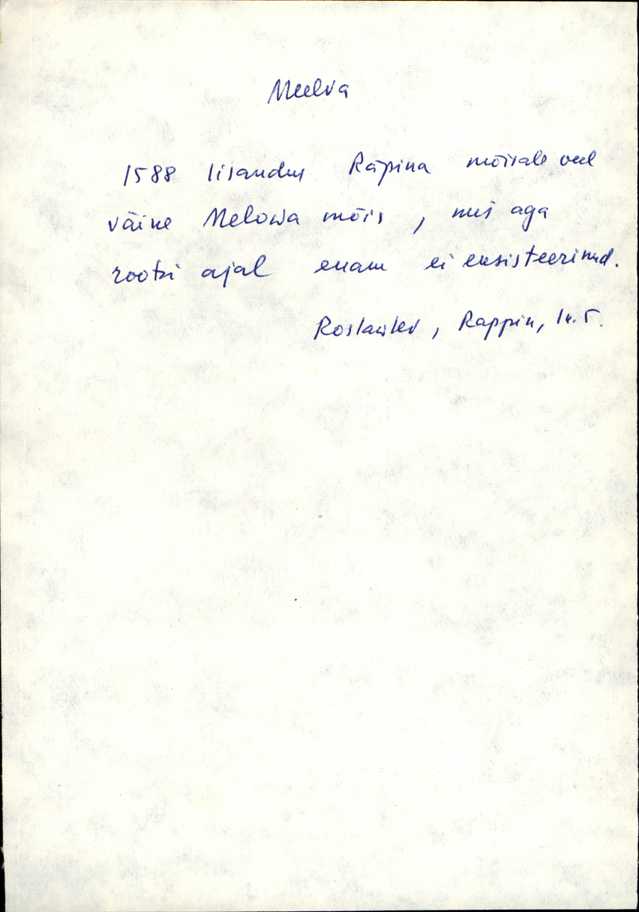 Meelva
1588 lisandus Räpina mõisale veel
väike Melowa mõis, mis aga
rootsi ajal enam ei eksisteerinud.
Roslavlev, Rappin, lk. 5.